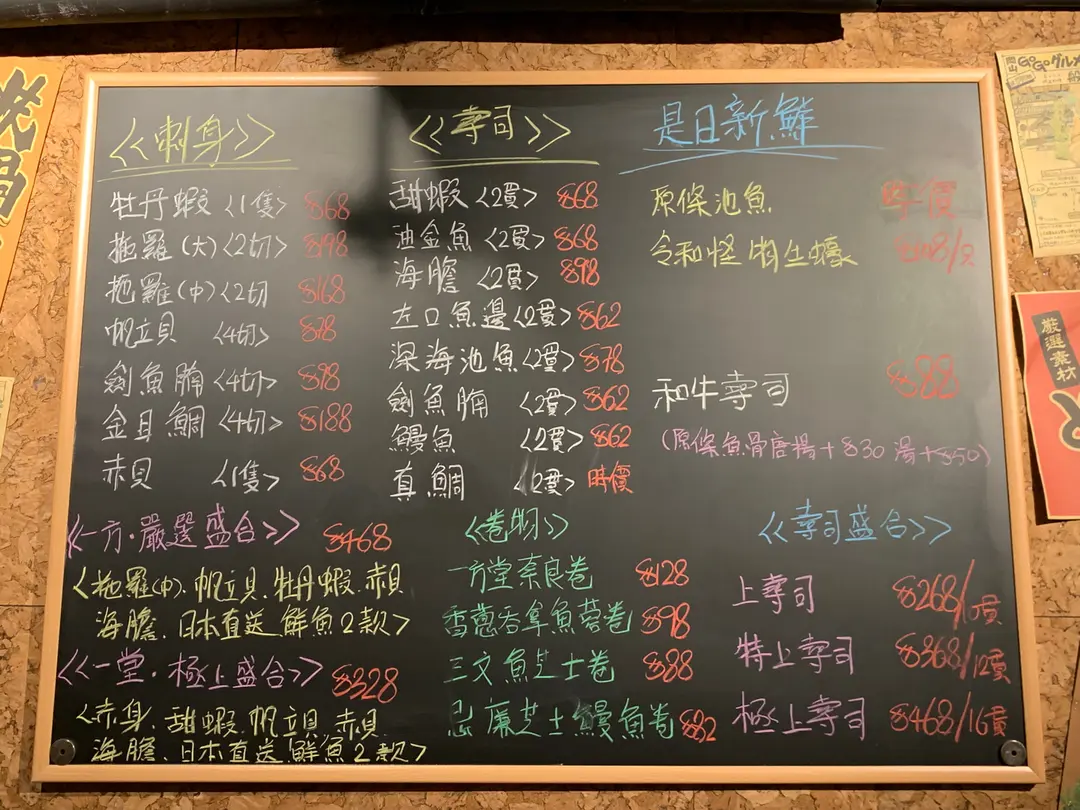 <<刺身>>
牡丹蝦 <1隻> $68
拖羅(大)<2切> $198
拖羅(中)<2切 $168
帆立貝 <4切> $78
劍魚腩 <4切> $98
金目鯛 <4切> $188
赤貝 <1隻> $68
<<一方·嚴選盛合>> $468
<拖羅(中)、帆立貝、牡丹蝦、赤貝
海膽、日本直送鮮魚2款>
<<一堂·極上盛合>> $328
<赤身、甜蝦、帆立貝、赤貝
海膽、日本直送鮮魚2款>
<<壽司>>
甜蝦 <2貫> $68
油金魚 <2貫> $68
海膽 <2貫> $98
左口魚邊<2貫> $62
深海池魚<2貫> $78
劍魚腩 <2貫> $62
鰻魚 <2貫> $62
真鯛 <2貫> 時價
<卷物>>
一方堂奈良卷 $128
香蔥吞拿魚蓉卷 $98
三文魚芝士卷 $88
忌廉芝士鰻魚卷 $82
是日新鮮
原條池魚 時價
令和怪物生蠔
和牛壽司 $88
(原條魚骨唐揚+$30 湯+$50)
<<壽司盛合>>
上壽司 $268/10貫
特上壽司 $368/12貫
極上壽司 $468/16貫
GOGOグルメ
嚴選素材